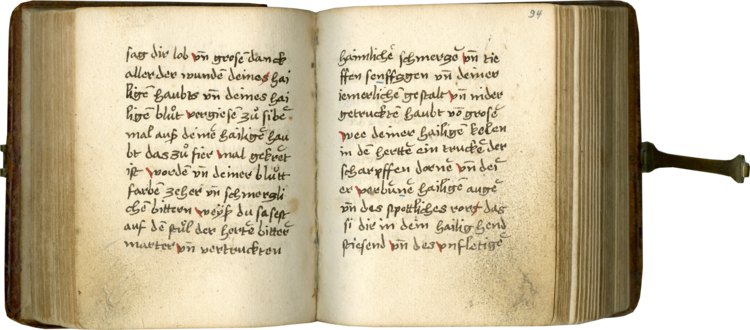 sag dir lob vn̄ grosen̄ danck
aller der wunden deines hai
ligen̄ haubts vn̄ deines hai
ligen̄ blůt vergiesen̄ zů sibē
mal auß deinē hailigē hau
bt das zů fier mal gekret
ist worden vn̄ deiner blůtt
farben̄ zeher vn̄ schmerzli
chen̄ bittern weyß du sasest
auf dē stůl der hertē bitterē
marter vn̄ vertruckten
94
haimlichē schmerzē vn̄ tie
ffen senffzgen vn̄ deiner
iemerlichē gestalt vn̄ nider
getrucktē haubt vō grosē
wee deiner hailigē
in dē hertē ein truckē der
scharpffen dornē vn̄ dei
er verbūnē hailigē augē
vn̄ des spotliches rors das
si dir in dein hailig hend
stiesend vn̄ des vnfletigē